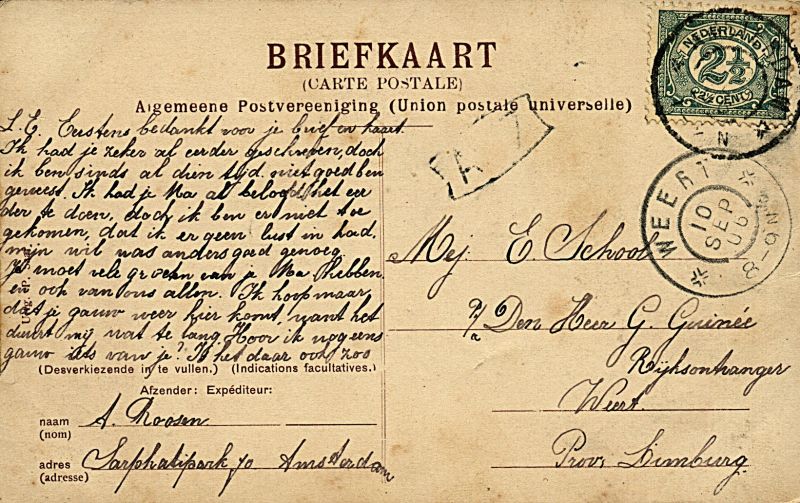 BRIEFKAART
(CARTE POSTALE)
Algemeene Postvereeniging (Union postale universelle)
NEDERLAND
2½
2½ CENT
A 7
WEERT
10
SEP
06
N 6-8
L. E. Eerstens bedankt voor je brief en kaart.
Ik had je zeker al eerder geschreven, doch
ik ben sinds al dien tijd niet goed ben
geweest. Ik had je Ma al beloofd het eer
der te doen, doch ik ben er niet toe
gekomen, dat ik er geen lust in had,
mijn wil was anders goed genoeg.
Je moet vele groeten van je Ma hebben
en ook van ons allen. Ik hoop maar
dat je gauw weer hier komt, want het
duurt mij wat te lang. Hoor ik nog eens
gauw iets van je? Is het daar ook zoo
(Desverkiezende in te vullen.) (Indications facultatives.)
Afzender: Expéditeur:
naam A. Roosen
(nom)
adres Sarphatipark 70 Amsterdam
(adresse)
Mej. E. School
p/a Den Heer G. Guinée
Rijksontvanger
Weert.
Prov. Limburg.